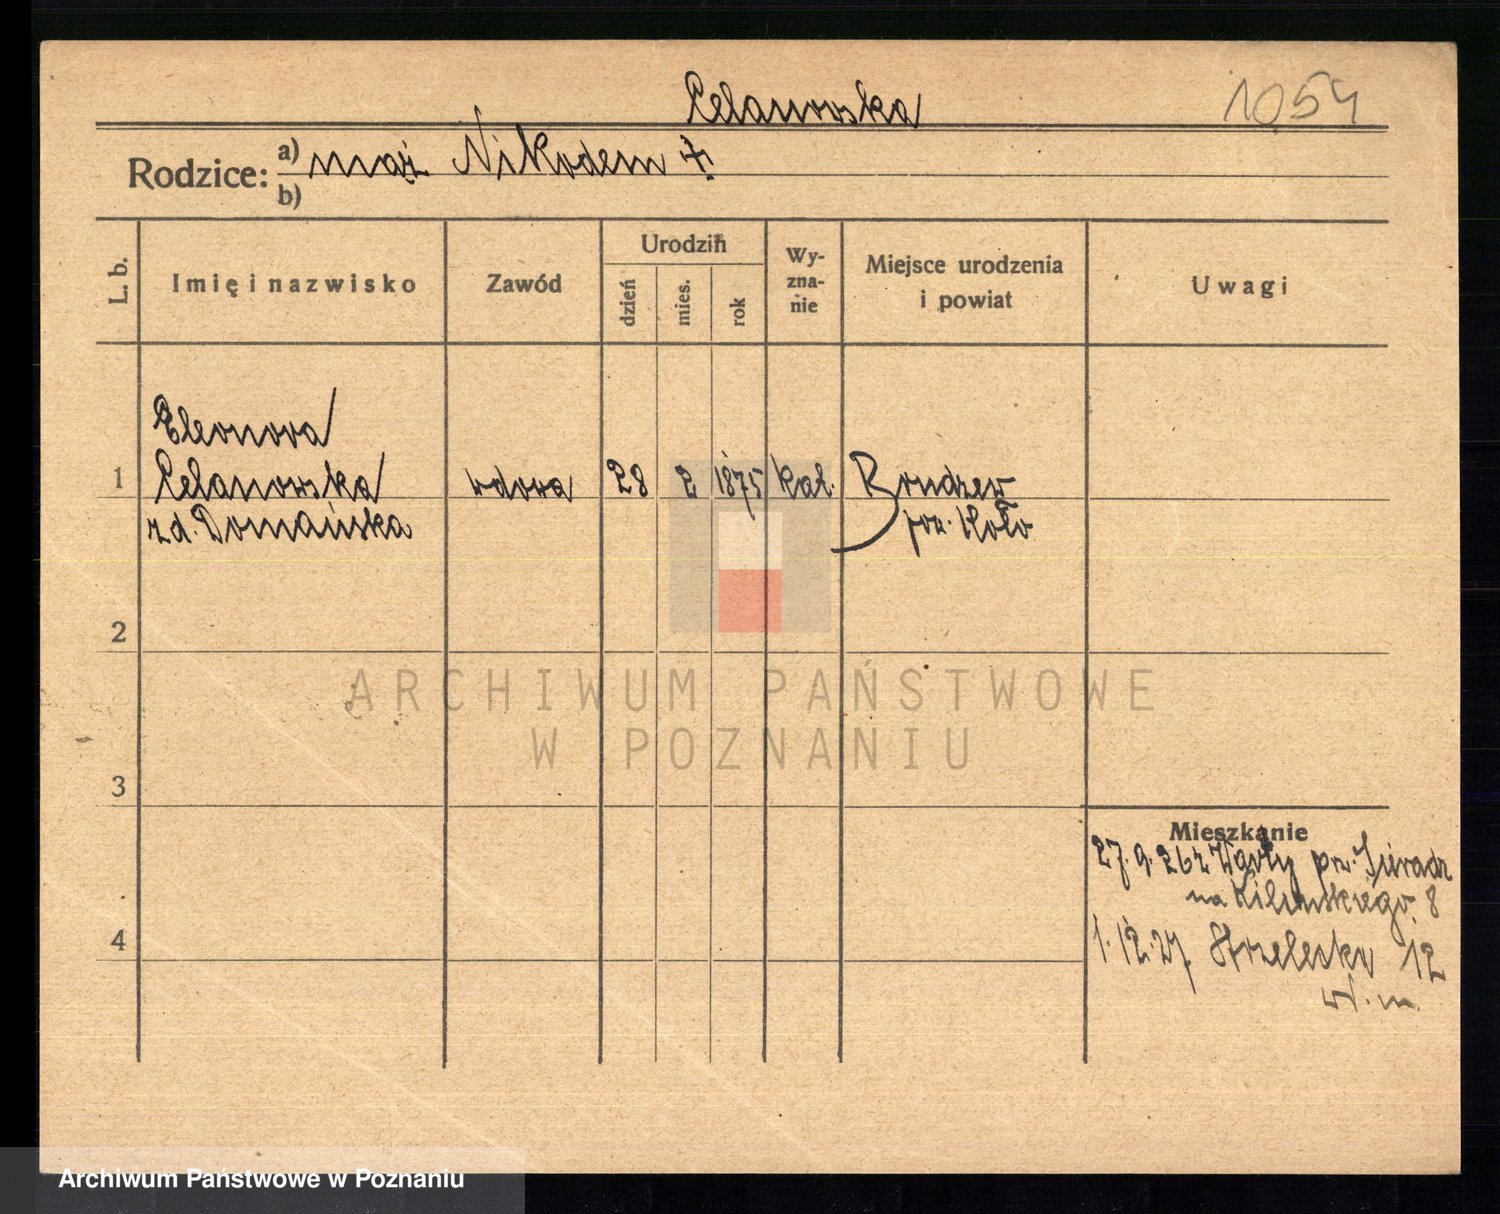 Celanowska 1054
Rodzice: a) mąż Nikodem ‡
b)
L. b. Imię i nazwisko Zawód Urodzin Wy-zna-nie Miejsce urodzenia i powiat Uwagi
dzień mies. rok
Eleonora
1 Celanowska wdowa 28 2 1875 kat. Brudzew
zd. Domańska pow. Koło
2
3
Mieszkanie
27.9.26 z Warty pow. Sieradz
na Kilińskiego 8
4 1.12.27 Strzelecka 12
wł. m.
ARCHIWUM PAŃSTWOWE
W POZNANIU
Archiwum Państwowe w Poznaniu